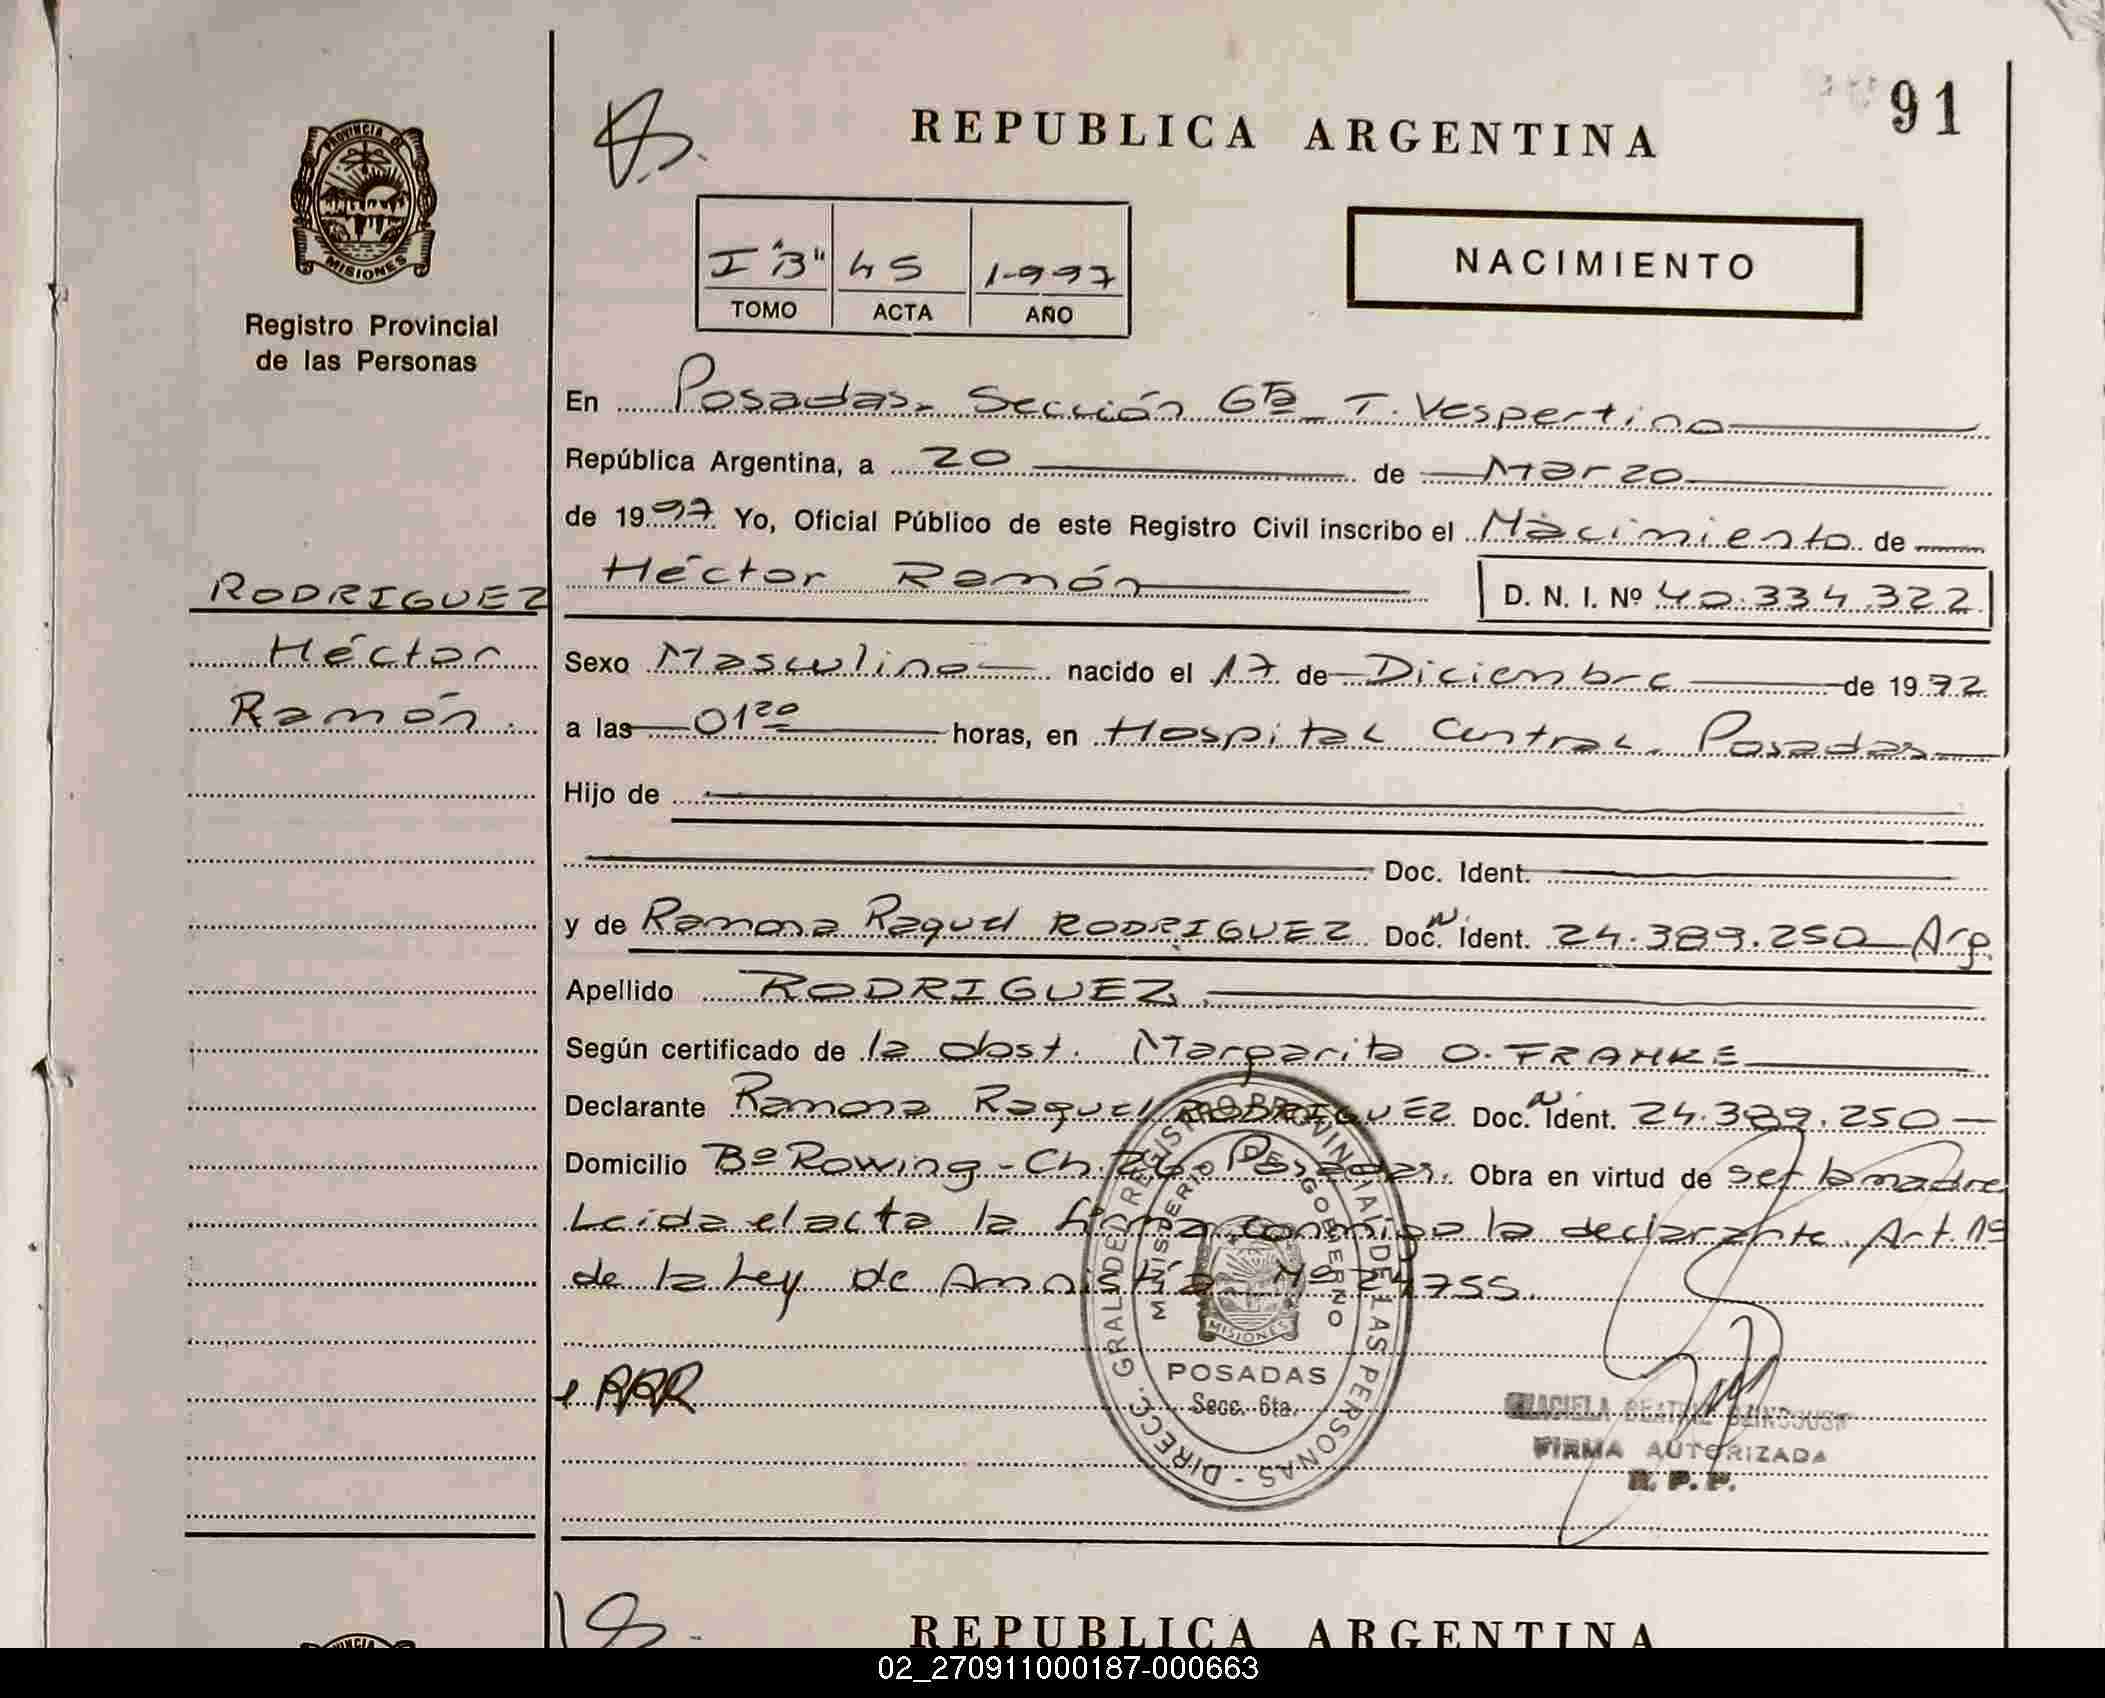 91
REPUBLICA ARGENTINA
PROVINCIA DE
MISIONES
Registro Provincial
de las Personas
I "B" 45 1.997
TOMO ACTA AÑO
NACIMIENTO
En Posadas. Sección 6ta T. Vespertino
República Argentina, a 20 de Marzo
de 1997 Yo, Oficial Público de este Registro Civil inscribo el Nacimiento de
Héctor Ramón D. N. I. Nº 40.334.322
RODRIGUEZ
Héctor
Ramón.
Sexo Masculino nacido el 17 de Diciembre de 19
a las 01 20 horas, en Hospital Central. Posadas
Hijo de
Doc. Ident.
y de Ramona Raquel RODRIGUEZ Doc. N. Ident. 24.389.250 Arg.
Apellido RODRIGUEZ.
Según certificado de la obst. Margarita O. FRANKE
Declarante Ramona Raquel RODRIGUEZ Doc. N. Ident. 24.389.250
Domicilio Bº Rowing - Ch. Posadas. Obra en virtud de ser la madre
Leida el acta la firma conmigo la declarante. Art. 1º
de la Ley de Amnistía Nº 24755.
RRR
DIRECC. GRAL DEL REGISTRO PROVINCIAL DE LAS PERSONAS
MINISTERIO DE GOBIERNO
MISIONES
POSADAS
Secc. 6ta.
GRACIELA BEATRIZ
FIRMA AUTORIZADA
R. P. P.
REPUBLICA ARGENTINA
02_270911000187-000663